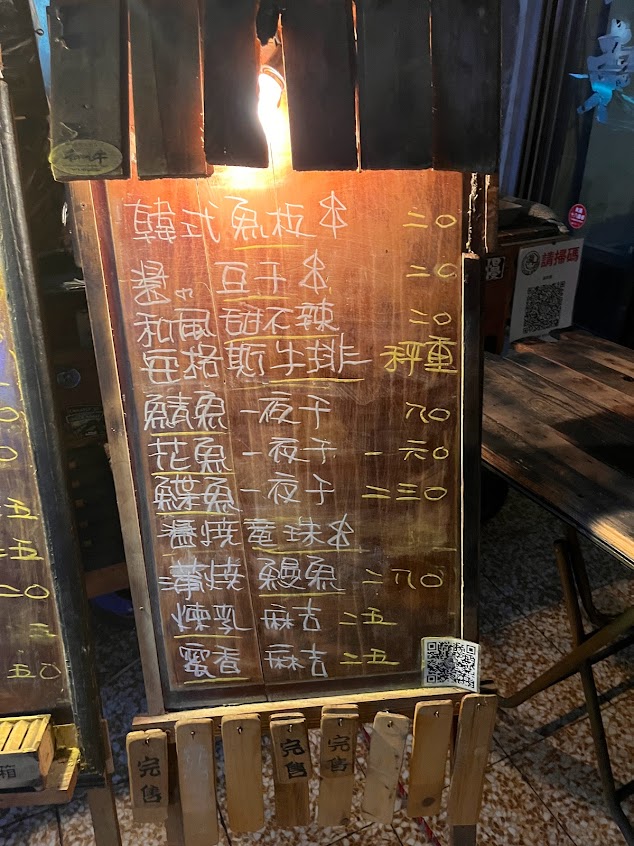 韓式魚板串 二〇
醬の豆干串 二〇
和風甜不辣 二〇
安格斯牛排 秤重
鯖魚一夜干 八〇
花魚一夜干 一六〇
鰈魚一夜干 二三〇
醬燒龍珠串
蒲燒鰻魚 二八〇
煉乳麻吉 二五
蜜香麻吉 二五
完售
完售
完售
請掃碼
五
五
二〇
五〇
箱